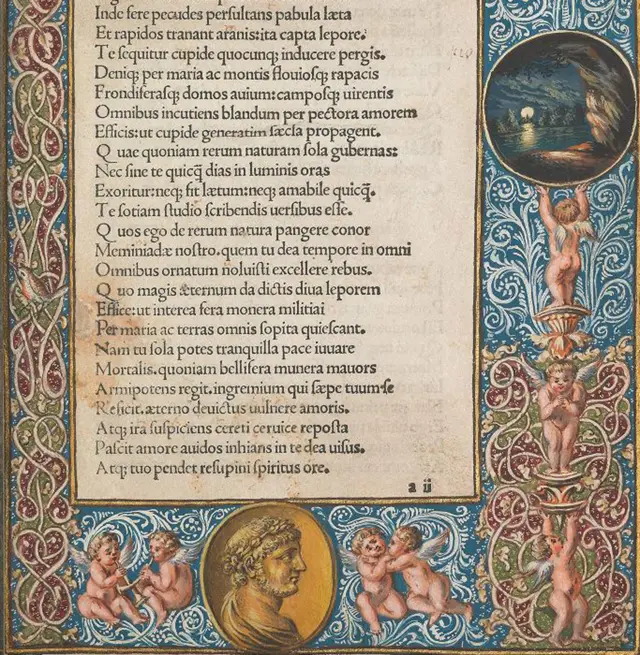 Inde fere pecudes perſultans pabula læta
Et rapidos tranant aranis:ita capta lepore.
Te ſequitur cupide quocunq; inducere pergis.
Deniq; per maria ac montis flouioſq; rapacis
Frondiferaſq; domos auium:campoſq; uirentis
Omnibus incutiens blandum per pectora amorem
Efficis:ut cupide generatim ſæcla propagent.
Quae quoniam rerum naturam ſola gubernas:
Nec ſine te quicq̃ dias in luminis oras
Exoritur:neq; fit lætum:neq; amabile quicq̃.
Te ſotiam ſtudio ſcribendis uerſibus eſſe.
Quos ego de rerum natura pangere conor
Meminiadæ noſtro. quem tu dea tempore in omni
Omnibus ornatum ñoluiſti excellere rebus.
Quo magis æternum da dictis diua leporem
Effice:ut interea fera monera militiai
Per maria ac terras omnis ſopita quieſcant.
Nam tu ſola potes tranquilla pace iuuare
Mortalis. quoniam belliſera munera mauors
Armipotens regit. ingremium qui ſæpe tuum ſe
Reiicit. æterno deuictus uulnere amoris.
Atq; ita ſuſpiciens cereti ceruice repoſta
Paſcit amore auidos inhians in te dea uiſus.
Atq; tuo pendet reſupini ſpiritus ore.
a ii